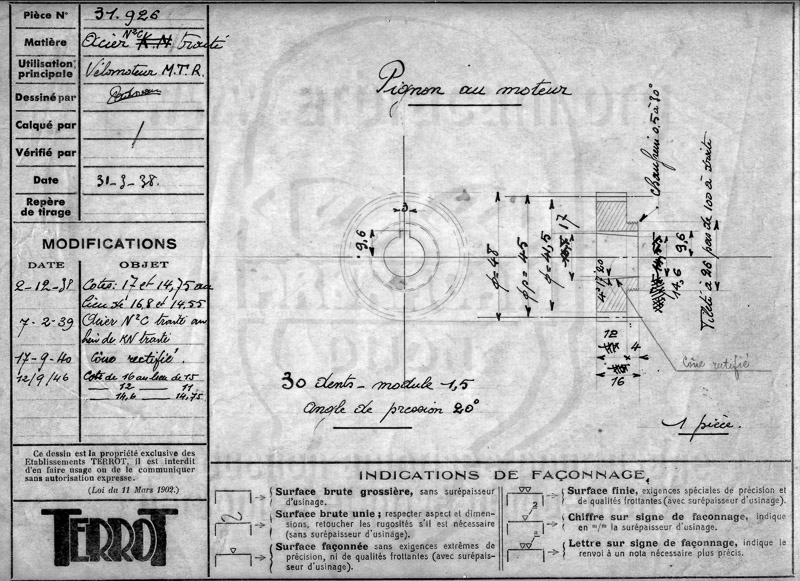 Pièce N° 31.926
Matière Acier N°C K.N traité
Utilisation principale Vélomoteur M.T.R.
Dessiné par
Calqué par /
Vérifié par
Date 31-3-38.
Repère de tirage
MODIFICATIONS
DATE OBJET
2-12-38 Cotes: 17 et 14,75 au
lieu de 16,8 et 14,55
7-2-39 Acier N°C traité au
lieu de KN traité
17-9-40 Cône rectifié.
12/9/46 Cote de 16 au lieu de 15
12 — 11
14,6 — 14,75
Ce dessin est la propriété exclusive des
Etablissements TERROT, il est interdit
d'en faire usage ou de le communiquer
sans autorisation expresse.
(Loi du 11 Mars 1902.)
TERROT
Pignon au moteur
3
9,6
φ=48
φp=45
φ=41,5
17
4°17'20"
chanfrein 0,5 à 30°
14,6
9,6
Fileté à 26 pas de 100 à droite
12
4
16
Cône rectifié
30 dents - module 1,5
angle de pression 20°
1 pièce.
INDICATIONS DE FAÇONNAGE
Surface brute grossière, sans surépaisseur
d'usinage.
Surface brute unie; respecter aspect et dimen-
sions, retoucher les rugosités s'il est nécessaire
(sans surépaisseur d'usinage).
Surface façonnée sans exigences extrêmes de
précision, ni de qualités frottantes (avec surépais-
seur d'usinage).
Surface finie, exigences spéciales de précision et
de qualités frottantes (avec surépaisseur d'usinage).
Chiffre sur signe de façonnage, indique
en m/m la surépaisseur d'usinage.
Lettre sur signe de façonnage, indique le
renvoi à un nota nécessaire plus précis.